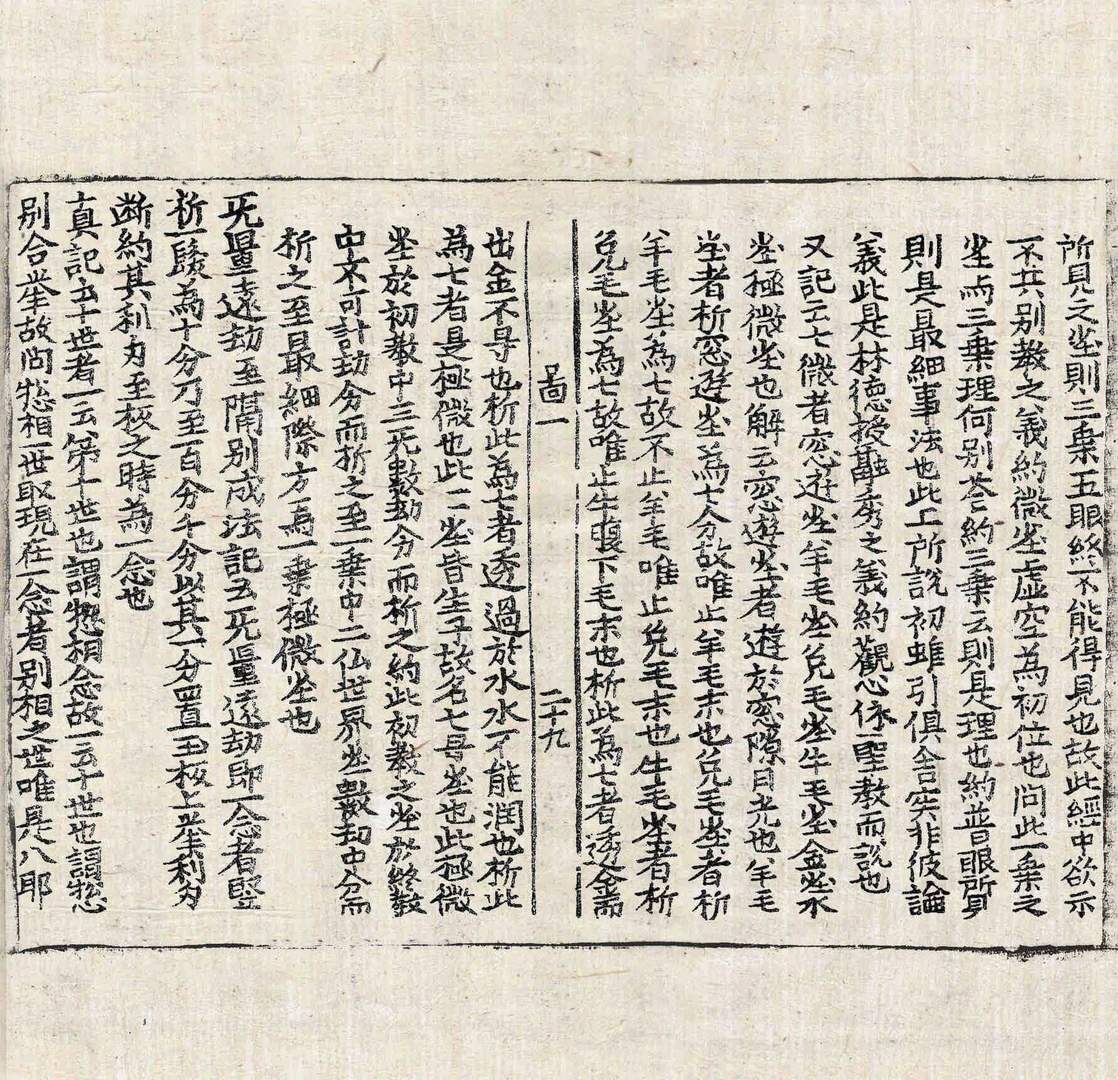 所見之尘則三乗五眼終不能得見也故此經中欲示
不共別教之義約微尘虛空為初位也问此一乗之
尘与三乗理何別荅約三乗云則是理也約普眼所見
則是最細事法也此上所說初雖引俱舍実非彼論
義此是林德授融秀之義約觀心依一聖教而說也
又記云七微者窓遊尘羊毛尘兔毛尘牛毛尘金尘水
尘極微尘也解云窓遊尘者遊於窓隙日光也羊毛
尘者析窓遊尘為七分故唯止羊毛末也兔毛尘者析
羊毛尘為七故不止羊毛唯止兔毛末也牛毛尘者析
兔毛尘為七故唯止牛腹下毛末也析此為七者透金而
啚一 二十九
出金不㝵也析此為七者透過於水水不能润也析此
為七者是極微也此二尘皆生子故名七母尘也此極微
尘於初教中三旡数劫分而析之約此初教之尘於終教
中不可計劫分而析之至一乗中二仏世界尘数劫中分而
析之至最細際方為一乗極微尘也
旡量遠劫至隔別成法記云旡量遠劫即一念者竪
析一髮為十分乃至百分千分以其一分置玉板上举利刀
断約其利刀至板之時為一念也
真記云十世者一云第十世也謂惣相念故一云十世也謂惣
別合举故问惣相一世取現在一念者別相之世唯是八耶